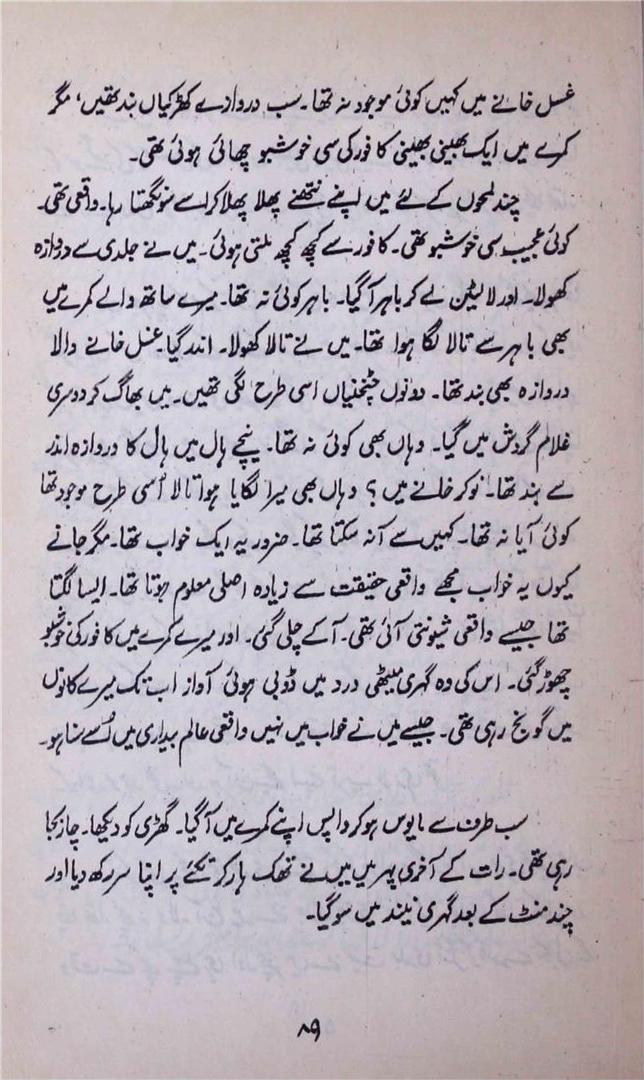 غسل خانے میں کہیں کوئی موجود نہ تھا۔ سب دروازے کھڑکیاں بند تھیں، مگر
کمرے میں ایک بھینی بھینی کافور کی سی خوشبو چھائی ہوئی تھی۔
چند لمحوں کے لئے میں اپنے نتھنے پھلا پھلا کر اسے سونگھتا رہا۔ واقعی تھی۔
کوئی عجیب سی خوشبو تھی۔ کافور سے کچھ کچھ ملتی ہوئی۔ میں نے جلدی سے دروازہ
کھولا۔ اور لالٹین لے کر باہر آ گیا۔ باہر کوئی نہ تھا۔ میرے ساتھ والے کمرے میں
بھی باہر سے تالا لگا ہوا تھا۔ میں نے تالا کھولا۔ اندر گیا۔ غسل خانے والا
دروازہ بھی بند تھا۔ دونوں چٹخنیاں اسی طرح لگی تھیں۔ میں بھاگ کر دوسری
غلام گردش میں گیا۔ وہاں بھی کوئی نہ تھا۔ نیچے ہال میں ہال کا دروازہ اندر
سے بند تھا۔ نوکر خانے میں؟ وہاں بھی میرا لگایا ہوا تالا اُسی طرح موجود تھا
کوئی آیا نہ تھا۔ کہیں سے آ نہ سکتا تھا۔ ضرور یہ ایک خواب تھا۔ مگر جانے
کیوں یہ خواب مجھے واقعی حقیقت سے زیادہ اصلی معلوم ہوتا تھا۔ ایسا لگتا
تھا جیسے واقعی شیونتی آئی تھی۔ آ کے چلی گئی۔ اور میرے کمرے میں کافور کی خوشبو
چھوڑ گئی۔ اس کی وہ گہری میٹھی درد میں ڈوبی ہوئی آواز اب تک میرے کانوں
میں گونج رہی تھی۔ جیسے میں نے خواب میں نہیں واقعی عالم بیداری میں اُسے سنا ہو۔
سب طرف سے مایوس ہو کر واپس اپنے کمرے میں آ گیا۔ گھڑی کو دیکھا۔ چار بجا
رہی تھی۔ رات کے آخری پہر میں میں نے تھک ہار کر تکئے پر اپنا سر رکھ دیا اور
چند منٹ کے بعد گہری نیند میں سو گیا۔
۸۹